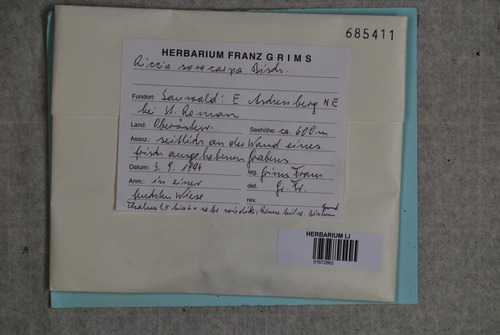 685411
HERBARIUM FRANZ GRIMS
Riccia sorocarpa Bisch.
Fundort: Sauwald: E Aschenberg NE
bei St. Roman
Land: Oberösterr. Seehöhe: ca. 600 m
Assoz.: seitlich an der Wand eines
frisch ausgehobenen Grabens
Datum: 3. 9. 1994 leg. Grims Franz
Anm.: in einer det. Gr. Fr.
feuchten Wiese rev.
Thallus 1,5
HERBARIUM LI